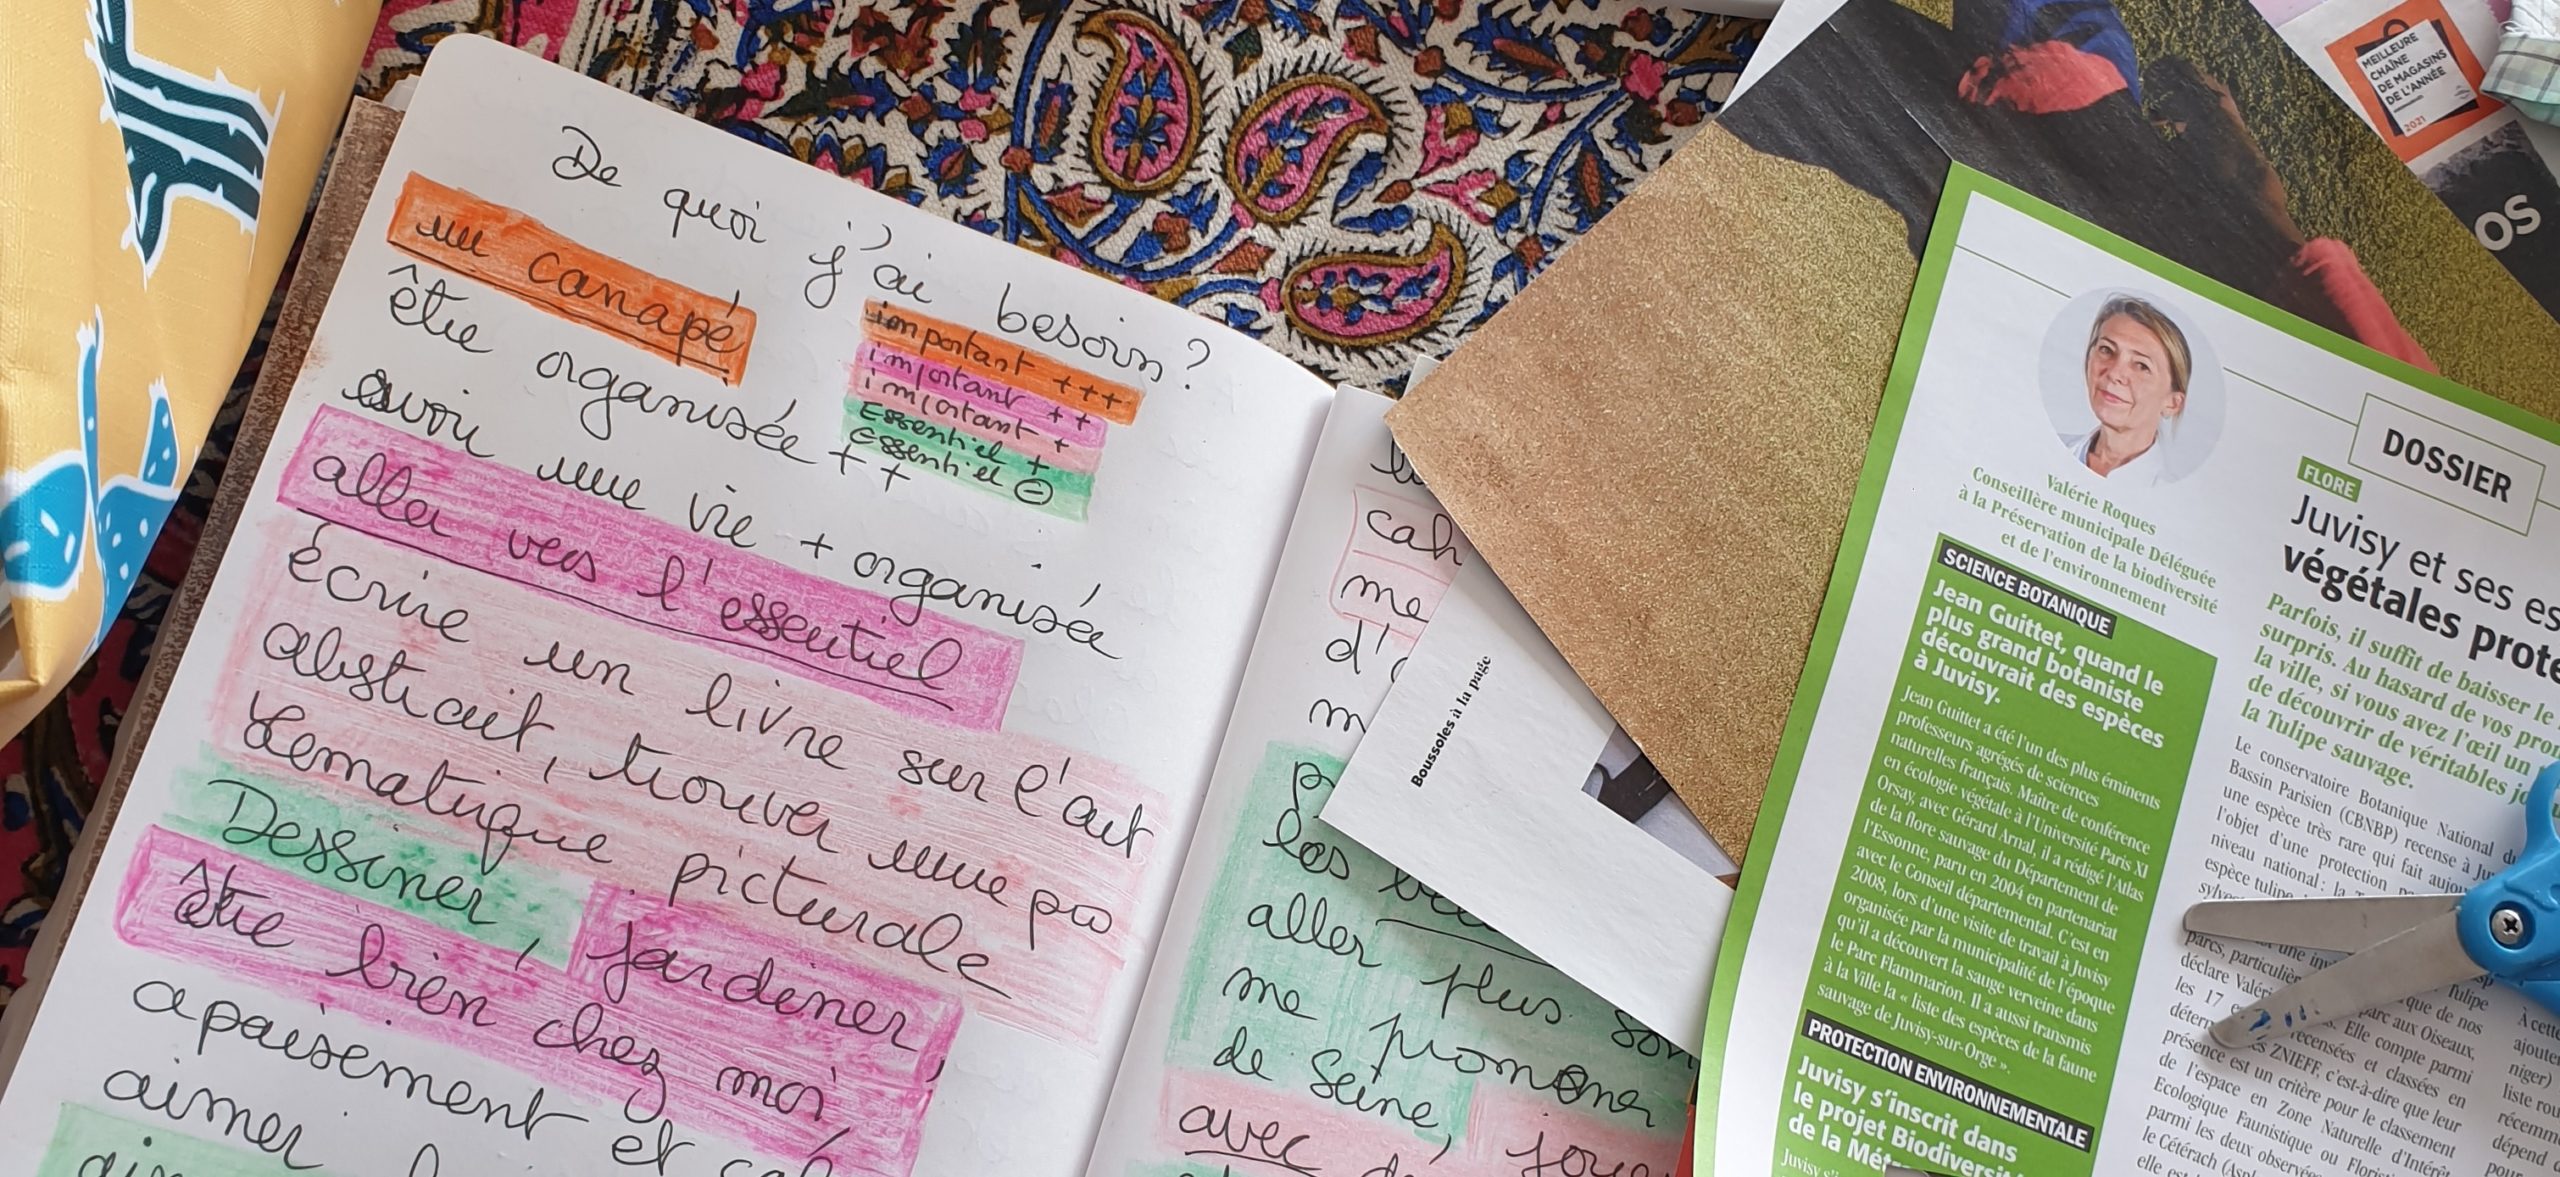 De quoi j'ai besoin?
un canapé
important +++
important ++
important +
Essentiel +
Essentiel
être organisée ++
avoir une vie + organisée
aller vers l'essentiel
écrire un livre sur l'art
abstrait, trouver une pro
blematique picturale
Dessiner, jardiner,
être bien chez moi,
apaisement et
aimer
cah
me
d'
m
aller plus
me promener
de seine,
avec
Boussoles à la page
MEILLEURE
CHAÎNE
DE MAGASINS
DE L'ANNÉE
2021
OS
Valérie Roques
Conseillère municipale Déléguée
à la Préservation de la biodiversité
et de l'environnement
SCIENCE BOTANIQUE
Jean Guittet, quand le
plus grand botaniste
découvrait des espèces
à Juvisy.
Jean Guittet a été l'un des plus éminents
professeurs agrégés de sciences
naturelles français. Maître de conférence
en écologie végétale à l'Université Paris XI
Orsay, avec Gérard Arnal, il a rédigé l'Atlas
de la flore sauvage du Département de
l'Essonne, paru en 2004 en partenariat
avec le Conseil départemental. C'est en
2008, lors d'une visite de travail à Juvisy
organisée par la municipalité de l'époque
qu'il a découvert la sauge verveine dans
le Parc Flammarion. Il a aussi transmis
à la Ville la « liste des espèces de la faune
sauvage de Juvisy-sur-Orge ».
PROTECTION ENVIRONNEMENTALE
Juvisy s'inscrit dans
le projet Biodiversit
de la Mét
Juvisy s'i
DOSSIER
FLORE
Juvisy et ses es
végétales prote
Parfois, il suffit de baisser le
surpris. Au hasard de vos pro
la ville, si vous avez l'œil un
de découvrir de véritables jo
la Tulipe sauvage.
Le conservatoire Botanique National du
Bassin Parisien (CBNBP) recense à Ju
une espèce très rare qui fait aujou
l'objet d'une protection
niveau national : la
espèce tulipe
sylves
parcs, particuliè
déclare Valéri
les 17 e
déterm
présence est un critère pour le classement
de l'espace en Zone Naturelle d'Intérêt
Ecologique Faunistique ou Floris
parmi les deux observées
le Cétérach (Aspl
elle est
une inv
Tulipe
que de nos
parc aux Oiseaux,
Elle compte parmi
recensées et classées en
ZNIEFF, c'est-à-dire que leur
À cette
ajouter
niger)
liste rou
récemm
dépend d
pour